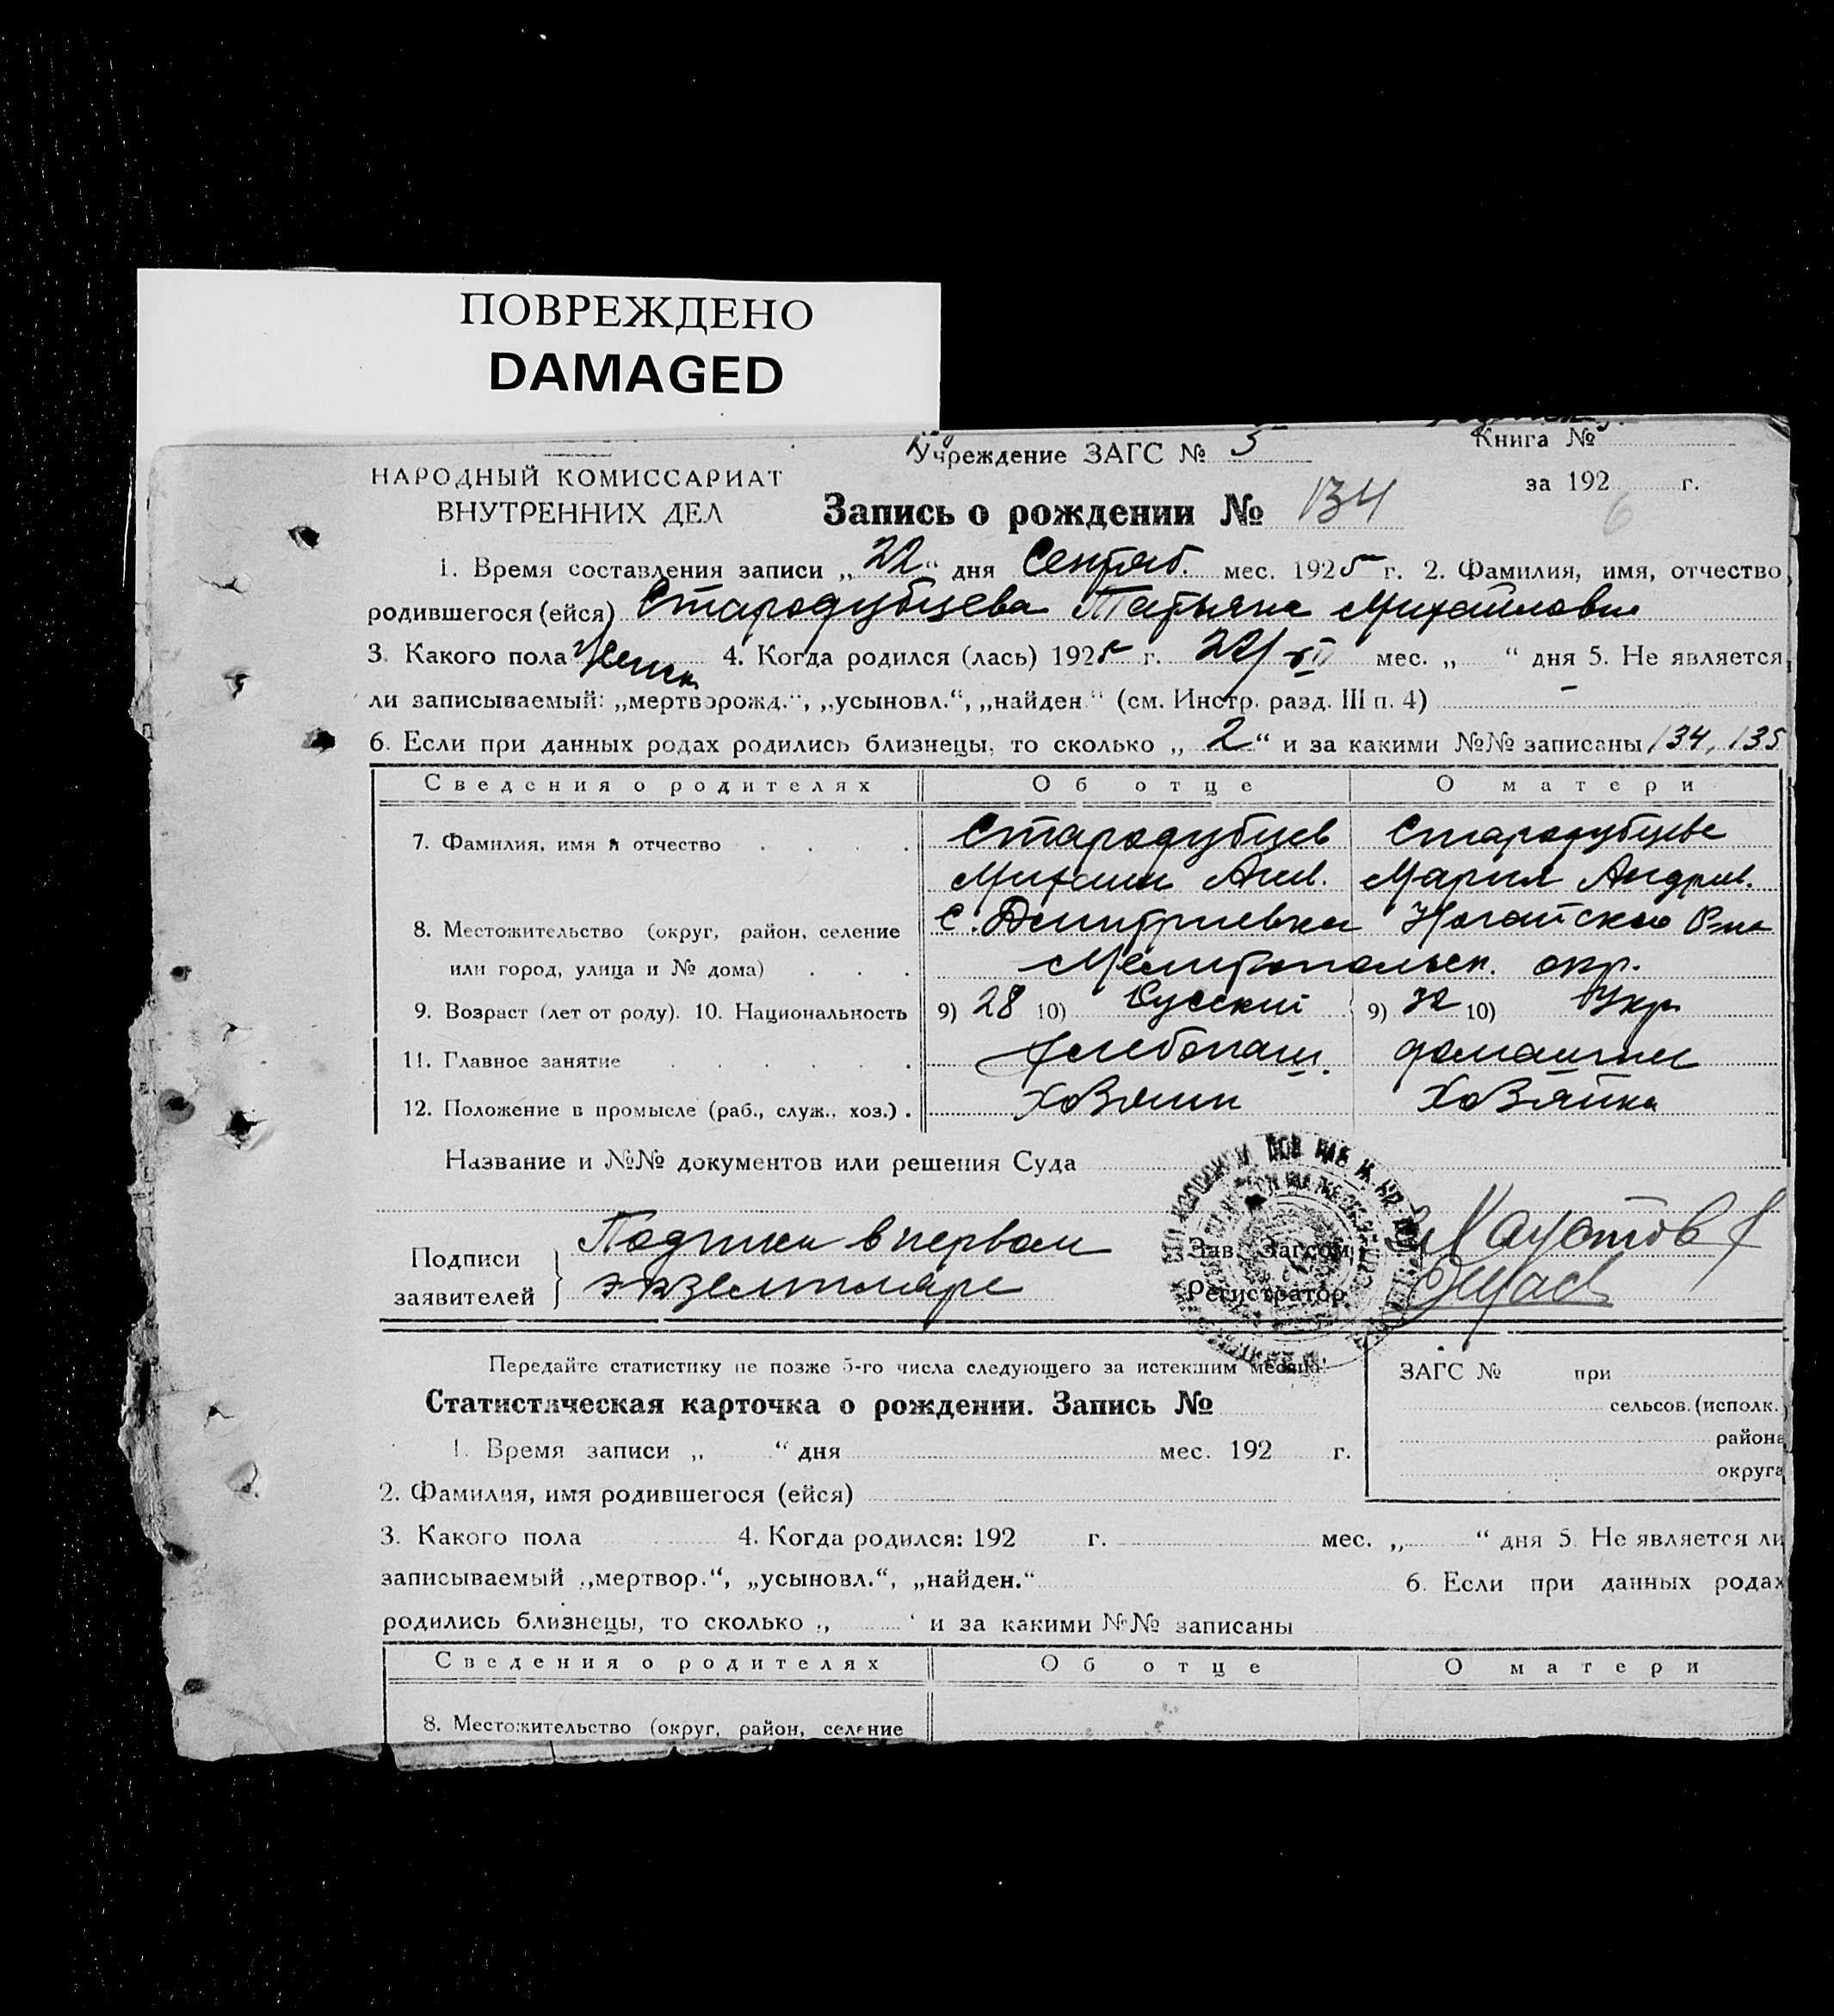 ПОВРЕЖДЕНО
DAMAGED
Учреждение ЗАГС № 5
Книга №
НАРОДНЫЙ КОМИССАРИАТ
ВНУТРЕННИХ ДЕЛ
за 192 6 г.
Запись о рождении № 134
1. Время составления записи „22“ дня Сентяб. мес. 1925 г. 2. Фамилия, имя, отчество
родившегося (ейся) Стародубцева Татьяна Михайловна
3. Какого пола Женск 4. Когда родился (лась) 1925 г. 22/ мес. „ “ дня 5. Не является
ли записываемый: „мертворожд.“, „усыновл.“, „найден.“ (см. Инстр. разд. III п. 4) –
6. Если при данных родах родились близнецы, то сколько „2“ и за какими №№ записаны 134, 135
Сведения о родителях Об отце О матери
7. Фамилия, имя и отчество Стародубцев Стародубцева
Михаил Мария Андрив.
8. Местожительство (округ, район, селение С. Дмитриевка Ногайского
или город, улица и № дома) Мелитопольск. окр.
9. Возраст (лет от роду). 10. Национальность 9) 28 10) Русский 9) 32 10) Укр
11. Главное занятие Хлебопаш. домашняя
12. Положение в промысле (раб., служ., хоз.) Хозяин Хозяйка
Название и №№ документов или решения Суда
Подписи заявителей } Подписи в первом
экземпляре
Зав. Загсом
Регистратор
Передайте статистику не позже 5-го числа следующего за истекшим месяца
Статистическая карточка о рождении. Запись №
ЗАГС № при
сельсов. (исполк.)
района
округа
1. Время записи „ “ дня мес. 192 г.
2. Фамилия, имя родившегося (ейся)
3. Какого пола 4. Когда родился: 192 г. мес. „ “ дня 5. Не является ли
записываемый „мертвор.“, „усыновл.“, „найден.“ 6. Если при данных родах
родились близнецы, то сколько „ “ и за какими №№ записаны
Сведения о родителях Об отце О матери
8. Местожительство (округ, район, селение